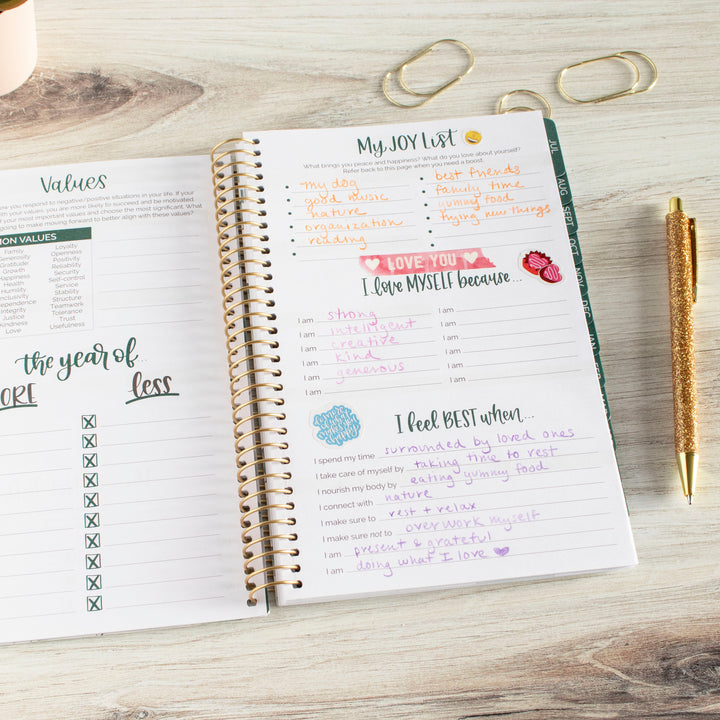 Values
you respond to negative/positive situations in your life. If your
with your values, you are more likely to succeed and be motivated.
of your most important values and choose the most significant. What
going to make moving forward to better align with these values?
MON VALUES
Family
Generosity
Gratitude
Growth
Happiness
Health
Humility
Inclusivity
Independence
Integrity
Justice
Kindness
Love
Loyalty
Openness
Positivity
Reliability
Security
Self-control
Service
Stability
Structure
Teamwork
Tolerance
Trust
Usefulness
the year of...
ORE less
My JOY List
What brings you peace and happiness? What do you love about yourself?
Refer back to this page when you need a boost.
my dog
good music
nature
organization
reading
best friends
family time
yummy food
trying new things
LOVE YOU
I love MYSELF because...
I am strong
I am intelligent
I am creative
I am kind
I am generous
I am
I am
I am
I am
I am
I feel BEST when...
I spend my time surrounded by loved ones
I take care of myself by taking time to rest
I nourish my body by eating yummy food
I connect with nature
I make sure to rest + relax
I make sure not to overwork myself
I am present & grateful
I am doing what I love
JUL
AUG
SEPT
OCT
NOV
DEC
JAN